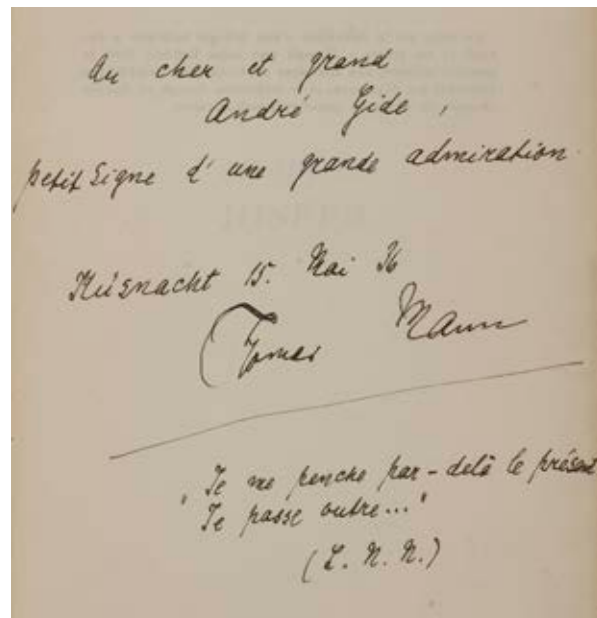 Au cher et grand
André Gide,
petit signe d'une grande admiration.
Küsnacht 15. Mai 36
Thomas Mann
"Je me penche par-delà le présent
Je passe outre..."
(L. N. N.)